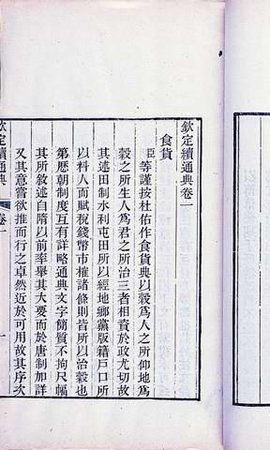 欽定續通典卷一
食貨
臣等謹按杜佑作食貨典以穀爲人之所仰地爲
穀之所生人爲君之所治三者相資於政尤切故
其述田制水利屯田所以經地鄉黨版籍戶口所
以料人而賦稅錢幣市榷諸條則皆所以治穀也
第歷朝制度互有詳略通典文字簡質不拘尺幅
其所敘述自隋以前率舉其大要而於唐制加詳
又其意嘗欲推而行之卓然近於可用故其序次
欽定續通典 卷一 一